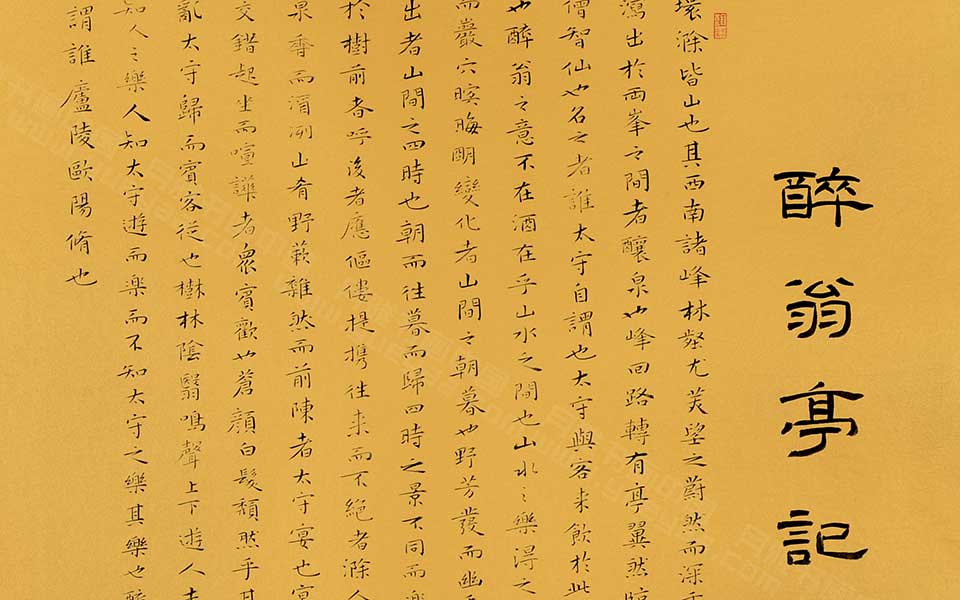 醉翁亭記
環滁皆山也其西南諸峰林壑尤美望之蔚然而深
瀉出於兩峯之間者釀泉也峰回路轉有亭翼然臨
僧智仙也名之者誰太守自謂也太守與客来飲於此
也醉翁之意不在酒在乎山水之間也山水之樂得之
而巖穴暝晦明變化者山間之朝暮也野芳發而幽
出者山間之四時也朝而往暮而歸四時之景不同而樂
於樹前者呼後者應傴僂提携往来而不絶者滁人
泉香而酒洌山肴野蔌雜然而前陳者太守宴也宴
交錯起坐而喧譁者衆賓歡也蒼顔白髮頽然乎其
亂太守歸而賓客從也樹林陰翳鳴聲上下遊人去
知人之樂人知太守遊而樂而不知太守之樂其樂也醉
謂誰廬陵歐陽脩也